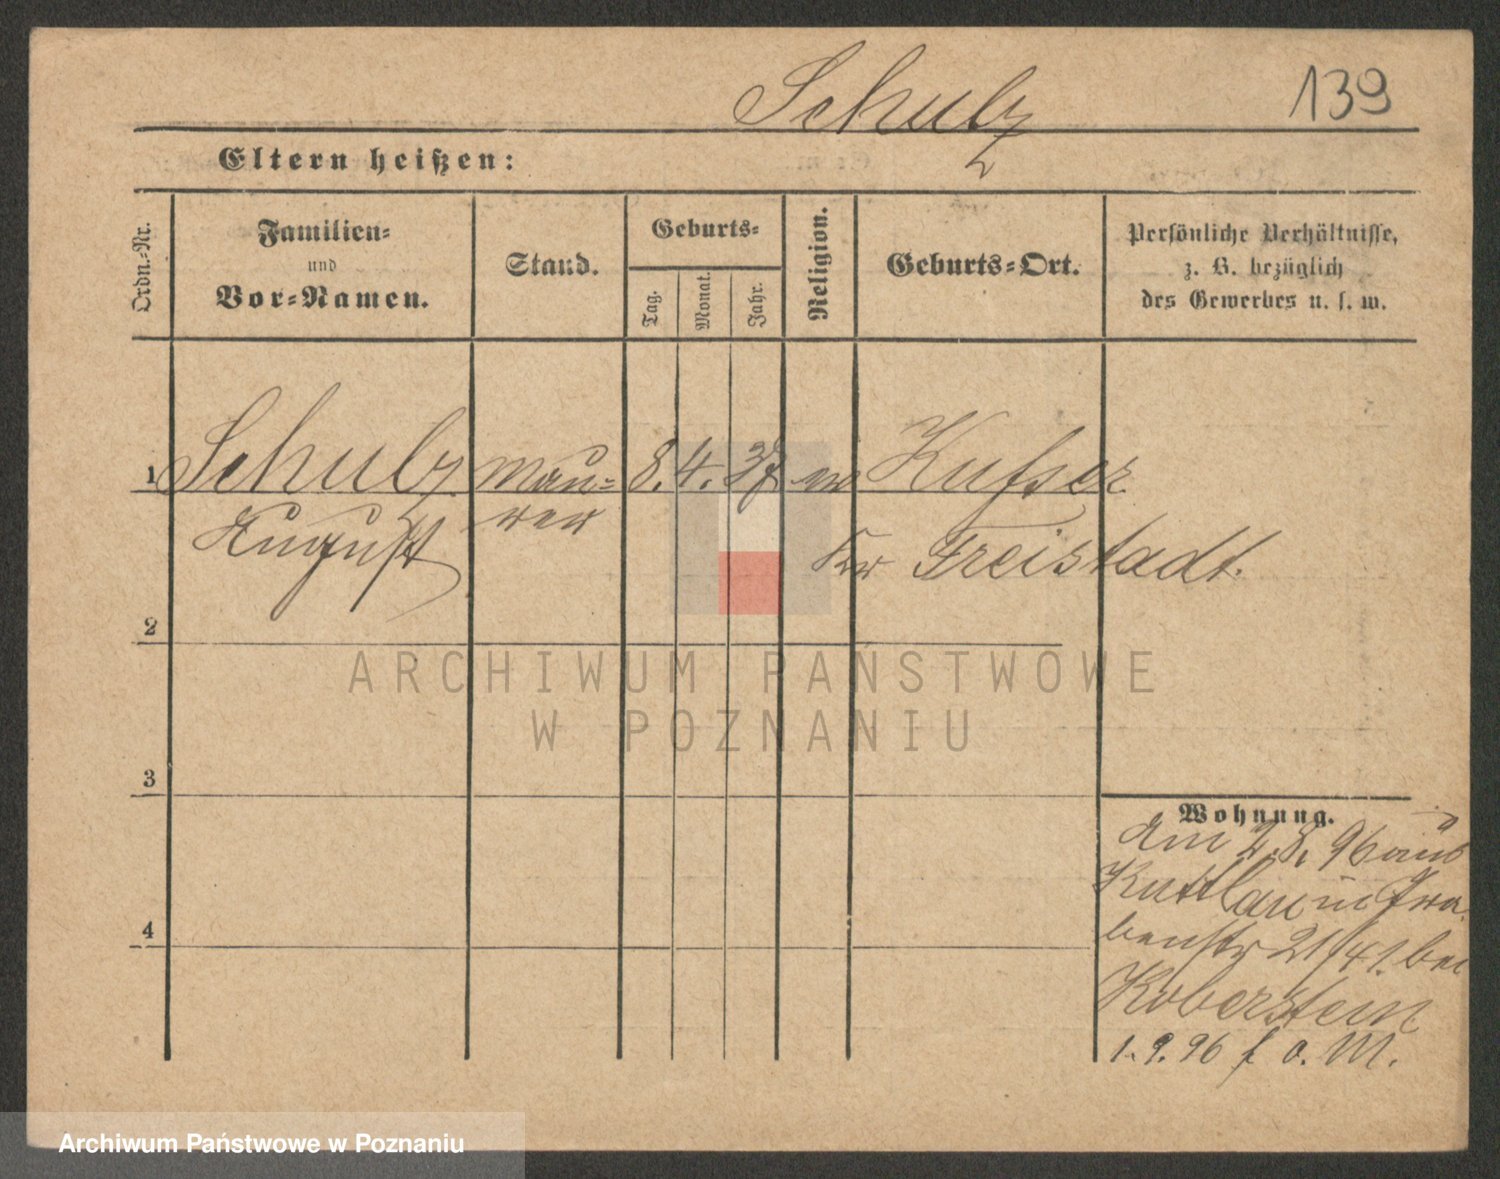 Schulz
139
Eltern heißen:
Ordn.-Nr.
Familien-
und
Vor-Namen.
Stand.
Geburts-
Tag.
Monat.
Jahr.
Religion.
Geburts-Ort.
Persönliche Verhältnisse,
z. B. bezüglich
des Gewerbes u. s. w.
1
Schulz
Mau-
8. 4. 37
Kufser
August
rer
Kr Freistadt.
2
ARCHIWUM PAŃSTWOWE
W POZNANIU
3
Wohnung.
Am 2.8. 96 aus
Kuttlau in Gra-
4
benstr 21/41. bei
Koberstein
1. 9. 96 f a. M.
Archiwum Państwowe w Poznaniu